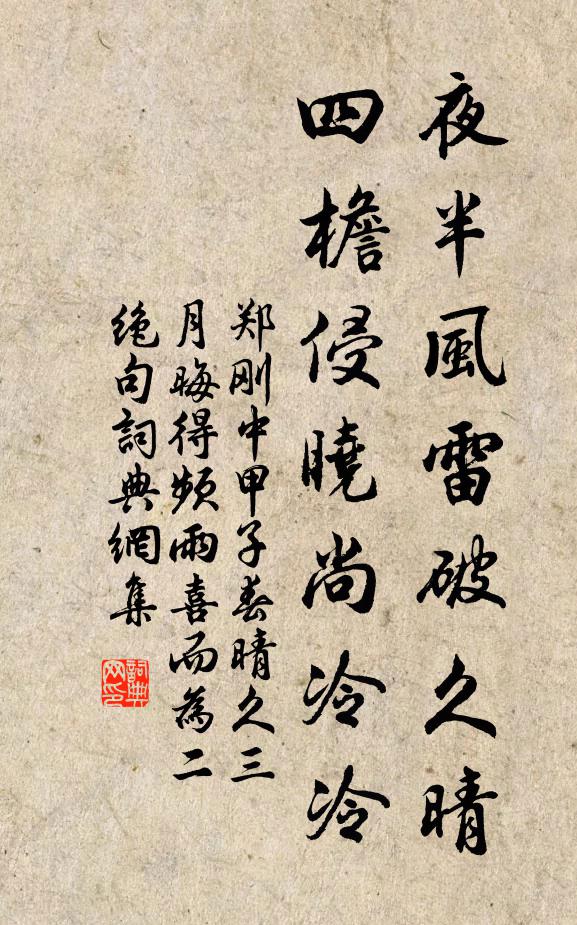 夜半風雷破久晴
四檐侵曉尚冷冷
郑刚中甲子春晴久三
月晦得频雨喜而為二
绝句詞典網集
詞典
网印